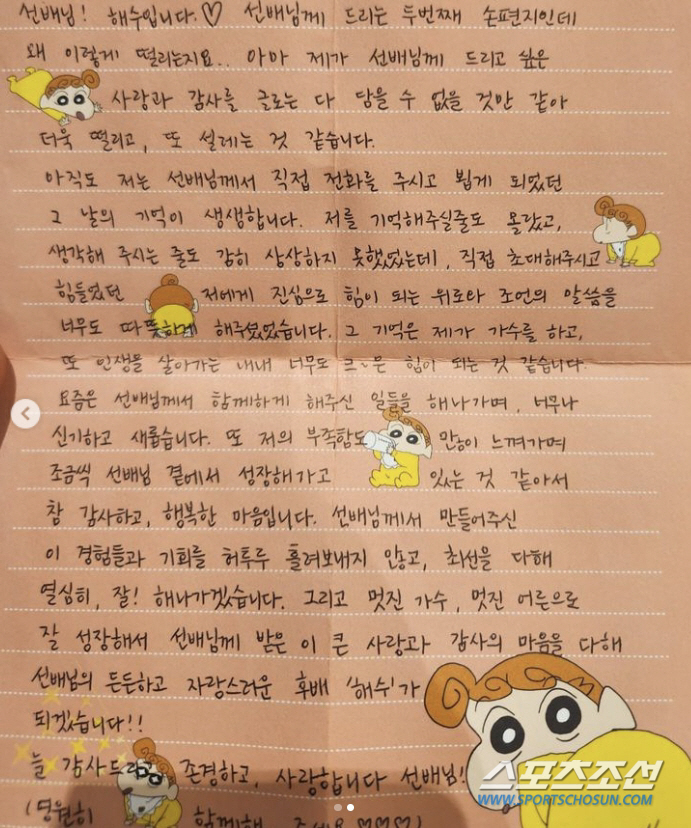 선배님! 해수입니다.♡ 선배님께 드리는 두번째 손편지인데
왜 이렇게 떨리는지요.. 아마 제가 선배님께 드리고 싶은
사랑과 감사를 글로는 다 담을 수 없을 것만 같아
더욱 떨리고, 또 설레는 것 같습니다.
아직도 저는 선배님께서 직접 전화를 주시고 뵙게 되었던
그 날의 기억이 생생합니다. 저를 기억해주실줄도 몰랐고,
생각해 주시는 줄도 감히 상상하지 못했었는데, 직접 초대해주시고
힘들었던 저에게 진심으로 힘이 되는 위로와 조언의 말씀을
너무도 따뜻하게 해주셨었습니다. 그 기억은 제가 가수를 하고,
또 인생을 살아가는 내내 너무도 크~은 힘이 되는 것 같습니다.
요즘은 선배님께서 함께하게 해주신 일들을 해나가며, 너무나
신기하고 새롭습니다. 또 저의 부족함도 많이 느껴가며
조금씩 선배님 곁에서 성장해가고 있는 것 같아서
참 감사하고, 행복한 마음입니다. 선배님께서 만들어주신
이 경험들과 기회를 허투루 흘려보내지 않고, 최선을 다해
열심히, 잘! 해나가겠습니다. 그리고 멋진 가수, 멋진 어른으로
잘 성장해서 선배님께 받은 이 큰 사랑과 감사의 마음을 다해
선배님의 든든하고 자랑스러운 후배 '해수'가
되겠습니다!!
늘 감사드리고 존경하고, 사랑합니다 선배님!
(영원히 함께해 주세요 ♡♡♡)
스포츠조선
WWW.SPORTSCHOSUN.COM